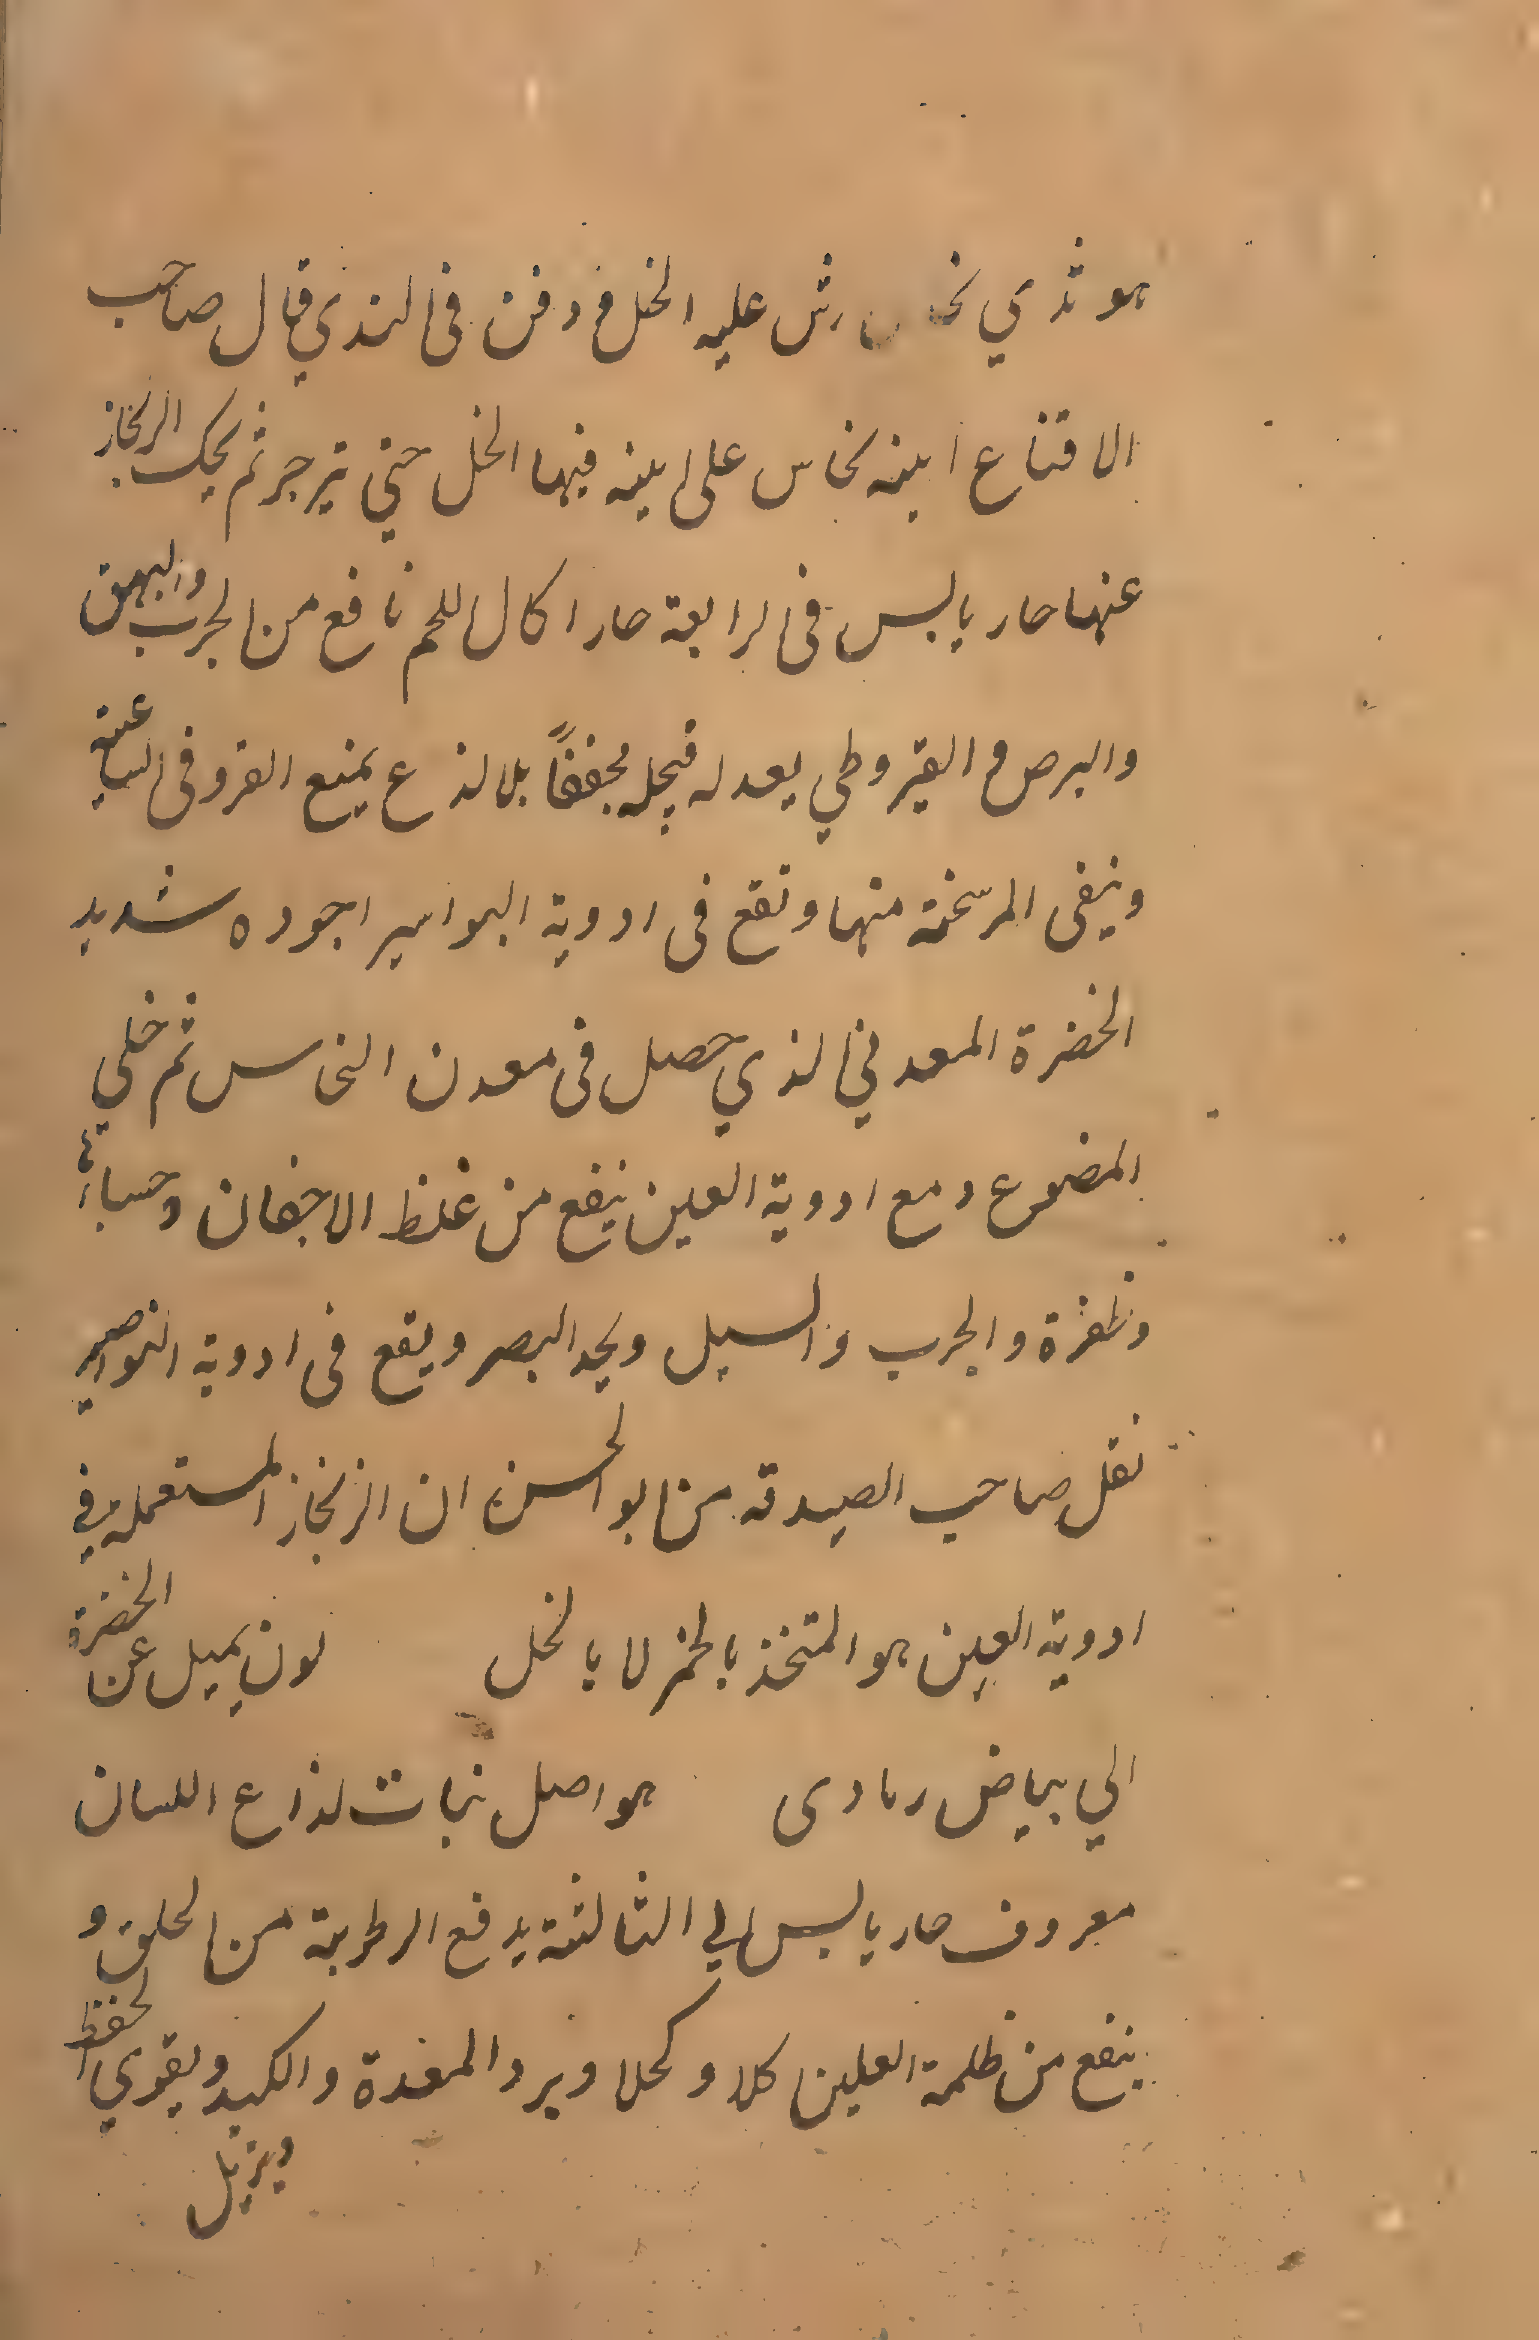 هو ثذي نحاس رش عليه الخل و دفن فى الندي قال صاحب
الاقناع انية نحاس على انية فيها الخل حتي تزجر ثم يحك الزنجار
عنها حار يابس فى الرابعة حارا كال للحم نافع من الجرب والبهق
والبرص و القيروطي يعدله فيجله مجففاً بلا لذع يمنع القروفى الساعية
وينفى المرسخة منها وتقع فى ادوية البواسير اجوده شديد
الخضرة المعدني الذي حصل فى معدن النحاس ثم خلي
المضوع و مع ادوية العين ينفع من غلظ الاجفان و حساها
وظفرة والجرب والسبل ويحد البصر ويقع فى ادوية النواصير
نقل صاحب الصيدنة من ابو الحسن ان الزنجار المستعملة في
ادوية العين هو المتخذ بالخمر لا بالخل لون يميل عن الخضرة
الي بياض رمادى هو اصل نبات لذاع اللسان
معروف حار يابس في الثالثة يدفع الرطوبة من الحلق و
ينفع من ظلمة العين اكلا و كحلا ويرد المعدة والكبد ويقوي الحفظ
ويزيل